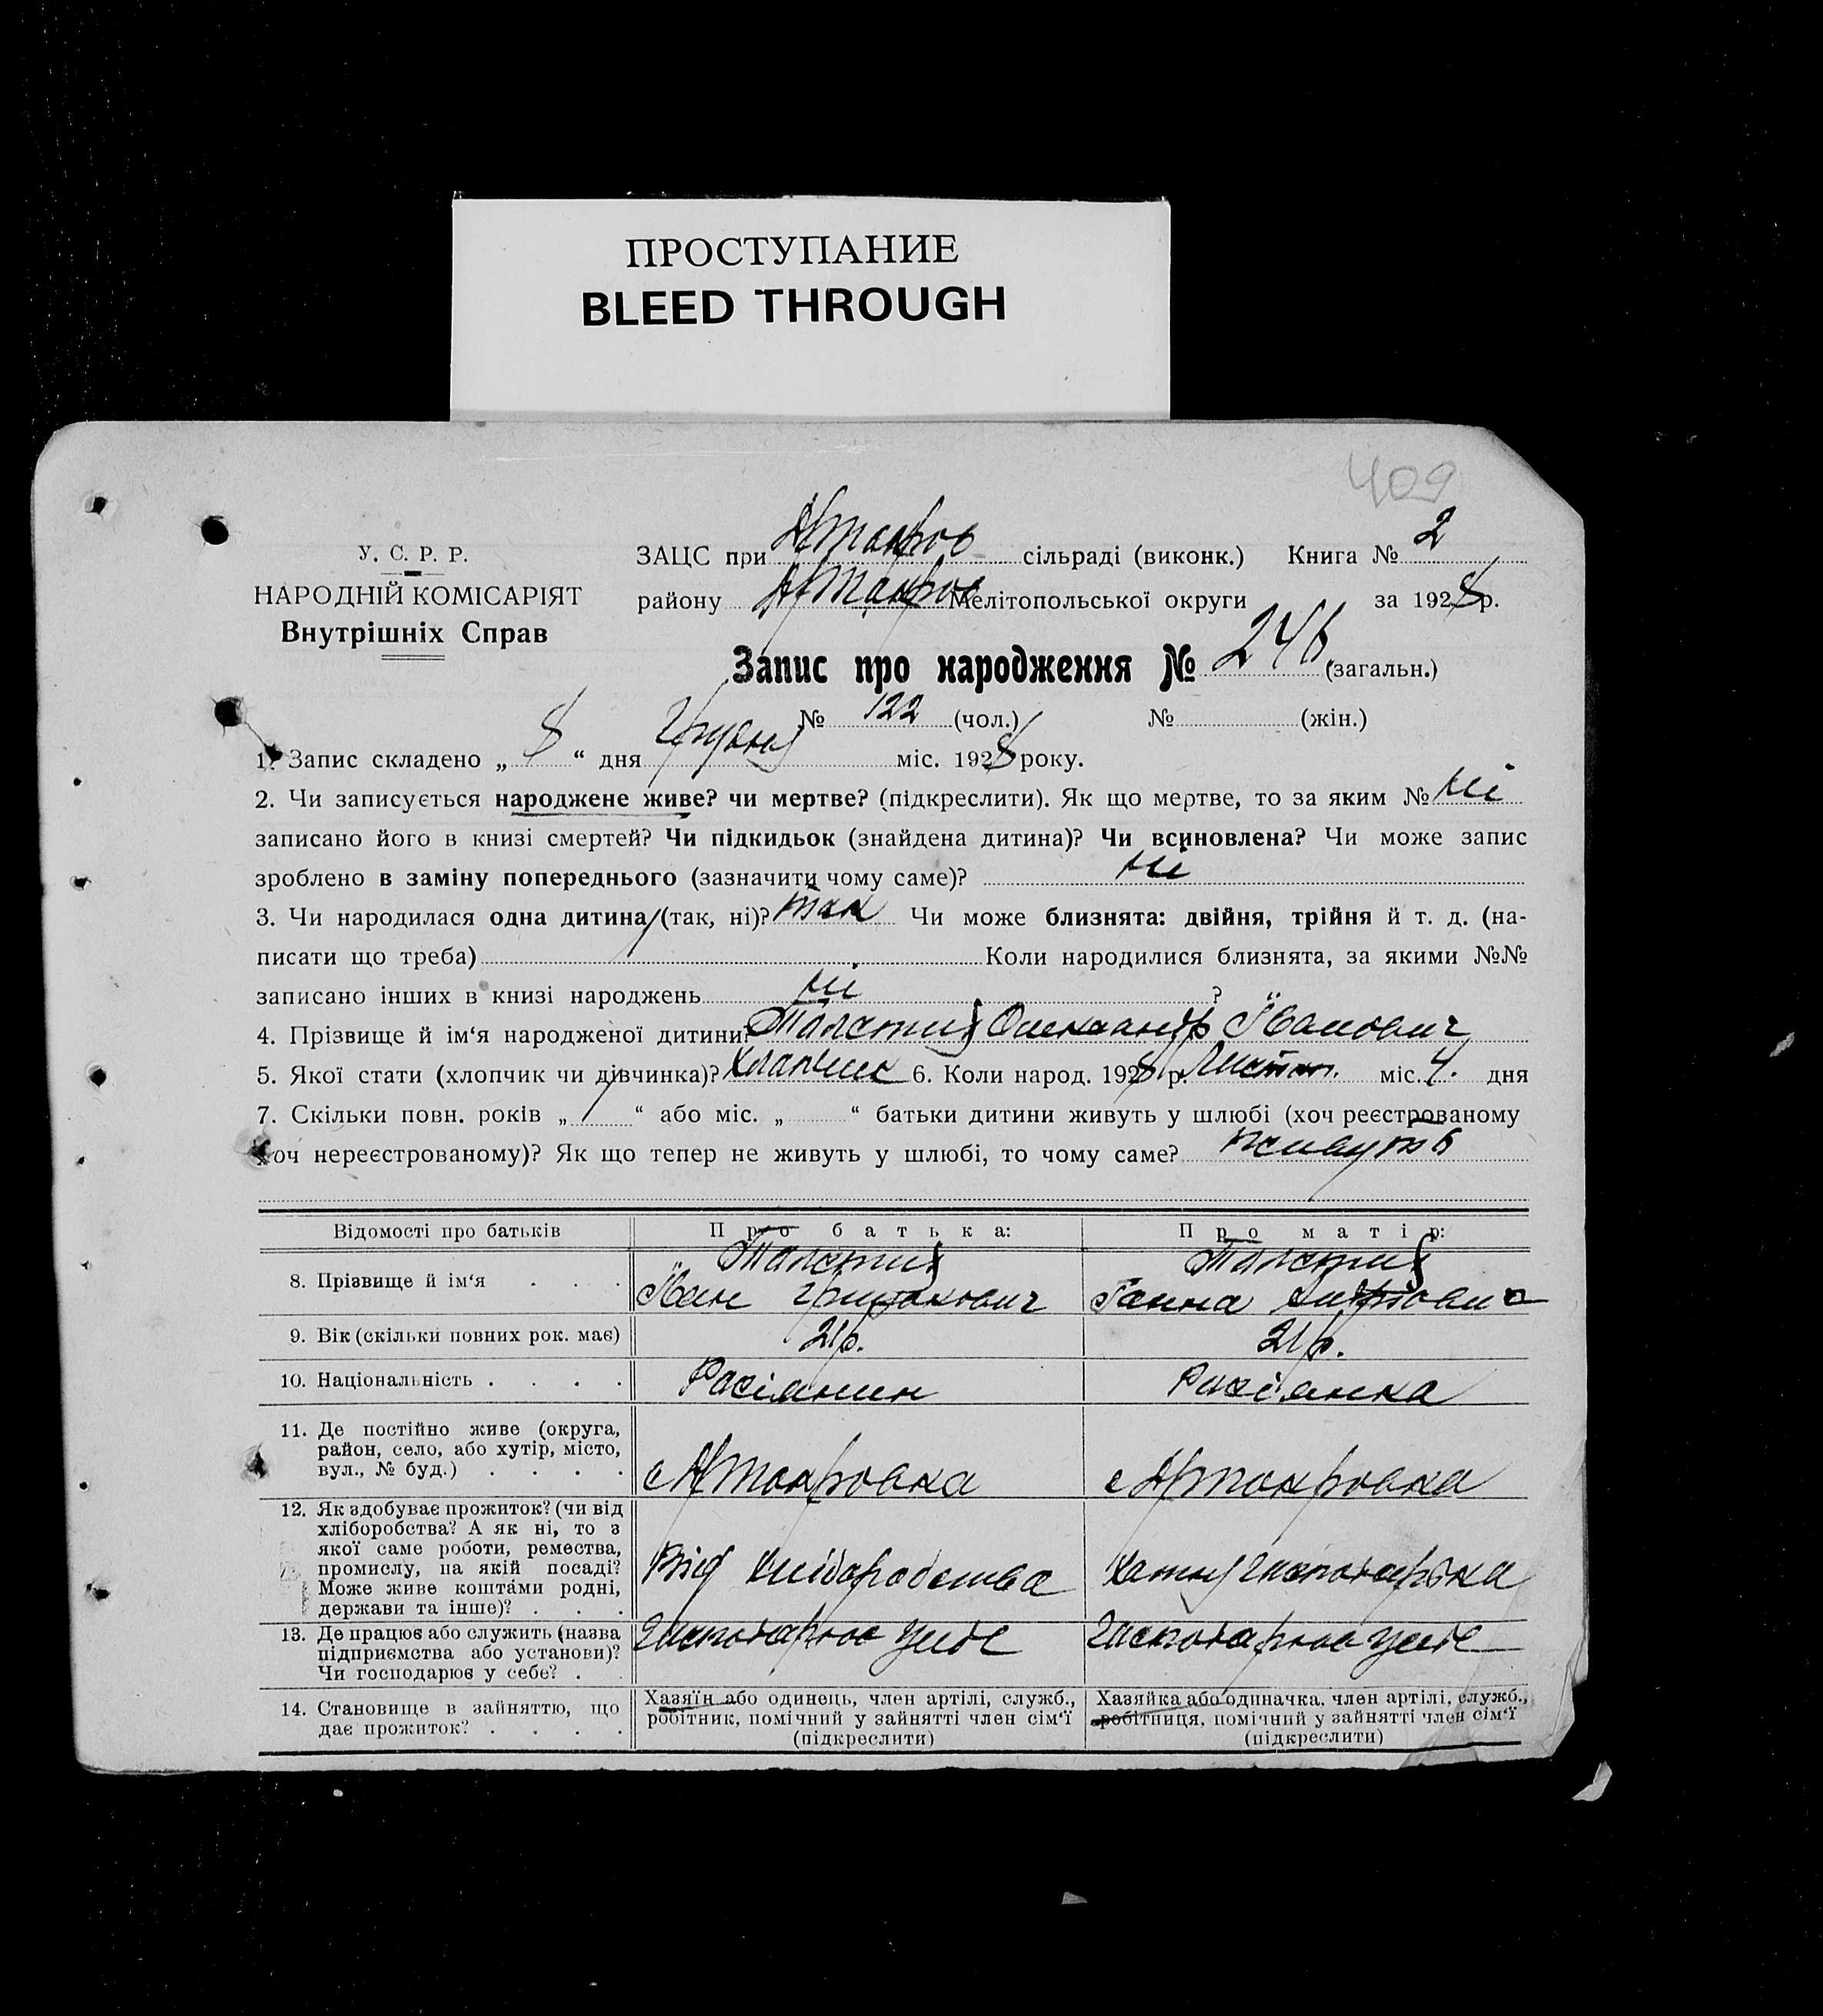 ПРОСТУПАНИЕ
BLEED THROUGH
409
У. С. Р. Р.
НАРОДНІЙ КОМІСАРІЯТ
Внутрішніх Справ
ЗАЦС при сільраді (виконк.) Книга № 2
району Мелітопольської округи за 1928 р.
Запис про народження № 246 (загальн.)
№ 122 (чол.) № (жін.)
1. Запис складено „ 8 “ дня Грудня міс. 1928 року.
2. Чи записується народжене живе? чи мертве? (підкреслити). Як що мертве, то за яким № ні
записано його в книзі смертей? Чи підкидьок (знайдена дитина)? Чи всиновлена? Чи може запис
зроблено в заміну попереднього (зазначити чому саме)? ні
3. Чи народилася одна дитина (так, ні)? так Чи може близнята: двійня, трійня й т. д. (на-
писати що треба) Коли народилися близнята, за якими №№
записано інших в книзі народжень ні ?
4. Прізвище й ім‘я народженої дитини? Толстий Олександр Іванович
5. Якої стати (хлопчик чи дівчинка)? Хлопчик 6. Коли народ. 1928 р. Листоп. міс. 4. дня
7. Скільки повн. років „ 1 “ або міс. „ “ батьки дитини живуть у шлюбі (хоч реєстрованому
хоч нереєстрованому)? Як що тепер не живуть у шлюбі, то чому саме? живуть
Відомості про батьків Про батька: Про матір:
8. Прізвище й ім‘я . . . . Толстий Іван Толстий Ганна
9. Вік (скільки повних рок. має) 21 р. 21 р.
10. Національність . . . . Росіянин Росіянка
11. Де постійно живе (округа,
район, село, або хутір, місто,
вул., № буд.) . . . .
12. Як здобуває прожиток? (чи від
хліборобства? А як ні, то з
якої саме роботи, ремества,
промислу, на якій посаді?
Може живе коштáми родні,
держави та інше)? . . .
Від хліборобства Хатня господарка
13. Де працює або служить (назва
підприємства або установи)?
Чи господарює у себе? . .
Господарює у себе Господарює у себе
14. Становище в зайняттю, що
дає прожиток? . . . .
Хазяїн або одинець, член артілі, служб.,
робітник, помічний у зайнятті член сім‘ї
(підкреслити)
Хазяйка або одиначка, член артілі, служб.,
робітниця, помічний у зайнятті член сім‘ї
(підкреслити)